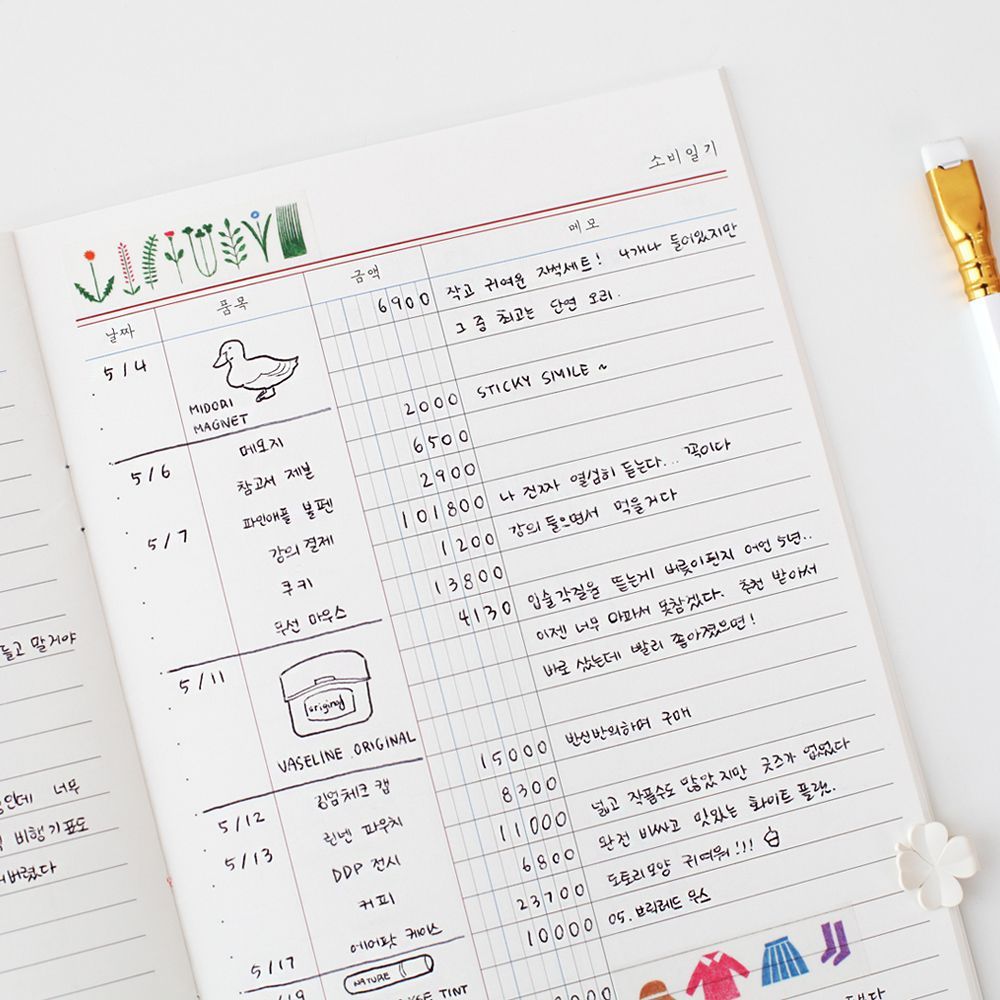 소비일기
날짜 품목 금액 메모
5/4 6900 작고 귀여운 자석세트! 4개나 들어있지만
그 중 최고는 단연 오리.
MIDORI
MAGNET
5/6 메모지 2000 STICKY SMILE ~
참고서 제본 6500
5/7 파인애플 볼펜 2900
강의 결제 101800 나 진짜 열심히 듣는다... 꼭이다
쿠키 1200 강의 들으면서 먹을거다
무선 마우스 13800
5/11 4130 입술각질을 뜯는게 버릇이된지 어언 5년..
이젠 너무 아파서 못참겠다. 추천 받아서
바로 샀는데 빨리 좋아졌으면!
original
VASELINE. ORIGINAL
5/12 깅엄체크 캡 15000 반신반의하며 구매
5/13 린넨 파우치 8300
DDP 전시 11000 넓고 작품수도 많았지만 굿즈가 없었다
커피 6800 완전 비싸고 맛있는 화이트 플랫.
에어팟 케이스 23700 도토리모양 귀여워!!!
5/17 10000 05. 브릭레드 무스
NATURE
TINT
들고 말거야
너무
비행기표도
버렸다